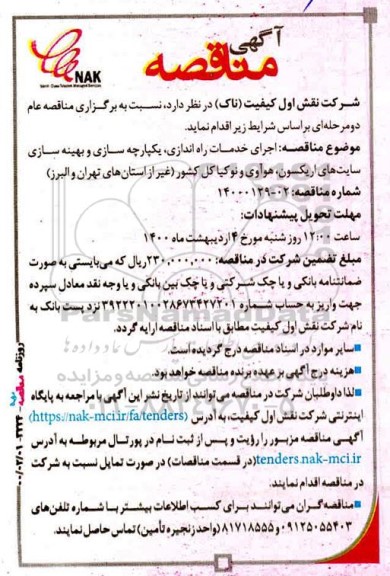 آگهی
مناقصه
NAK
شرکت نقش اول کیفیت (ناک) در نظر دارد، نسبت به برگزاری مناقصه عام
دومرحله‌ای براساس شرایط زیر اقدام نماید.
موضوع مناقصه: اجرای خدمات راه اندازی، یکپارچه سازی و بهینه سازی
سایت‌های اریکسون، هوآوی و نوکیا کل کشور (غیر از استان‌های تهران و البرز)
شماره مناقصه: ۰۲-۱۴۰۰۰۱۲۹
مهلت تحویل پیشنهادات:
ساعت ۱۲:۰۰ روز شنبه مورخ ۴ اردیبهشت ماه ۱۴۰۰
مبلغ تضمین شرکت در مناقصه: ۲۳۰,۰۰۰,۰۰۰ ریال که می‌بایستی به صورت
ضمانتنامه بانکی و یا چک شرکتی و یا چک بین بانکی و یا وجه نقد معادل سپرده
جهت واریز به حساب شماره ۳۹۲۲۲۰۱۰۰۲۸۶۷۳۴۲۷۲۰۱ نزد پست بانک به
نام شرکت نقش اول کیفیت مطابق با اسناد مناقصه ارایه گردد.
سایر موارد در اسناد مناقصه درج گردیده است.
هزینه درج آگهی بر عهده برنده مناقصه خواهد بود.
لذا داوطلبان شرکت در مناقصه می‌توانند از تاریخ نشر این آگهی با مراجعه به پایگاه
اینترنتی شرکت نقش اول کیفیت، به آدرس (https://nak-mci.ir/fa/tenders)
آگهی مناقصه مزبور را رؤیت و پس از ثبت نام در پورتال مربوطه به آدرس
tenders.nak-mci.ir (در قسمت مناقصات) در صورت تمایل نسبت به شرکت
در مناقصه اقدام نمایند.
مناقصه‌گران می‌توانند برای کسب اطلاعات بیشتر با شماره تلفن‌های
۰۹۱۲۵۰۵۵۴۰۳ و ۸۱۷۱۸۵۵۵ (واحد زنجیره تأمین) تماس حاصل نمایند.
روزنامه
ParsNamadData